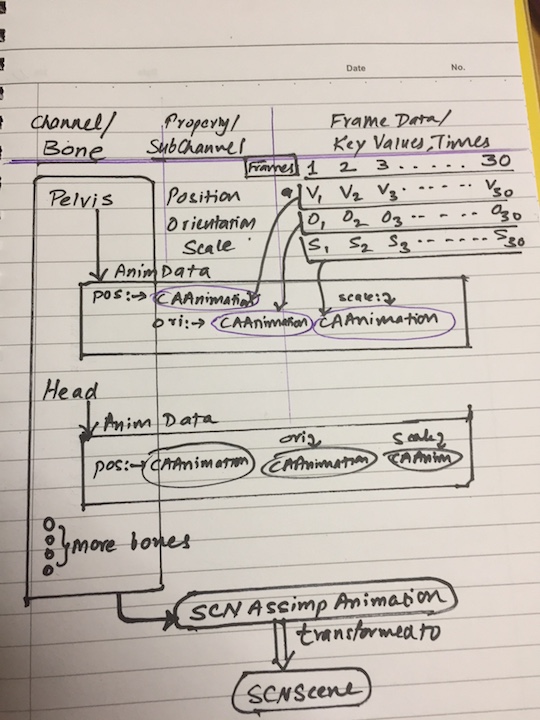 Date No.
Channel/ Property/ Frame Data/
Bone SubChannel Key Values, Times
Frames 1 2 3 ...... 30
Pelvis Position V1 V2 V3 ...... V30
Orientation O1 O2 O3 ...... O30
Scale S1 S2 S3 ...... S30
Anim Data
pos:→ CAAnimation scale:
ori:→ CAAnimation CAAnimation
Head
Anim Data
ori scale
pos:→ CAAnimation CAAnimation CAAnim
more bones
SCN Assimp Animation
transformed to
SCNScene